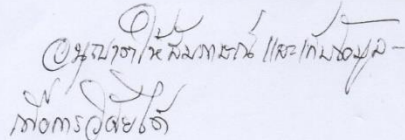 อนุญาตให้สัมภาษณ์ และเก็บข้อมูล -
เพื่อการวิจัยได้